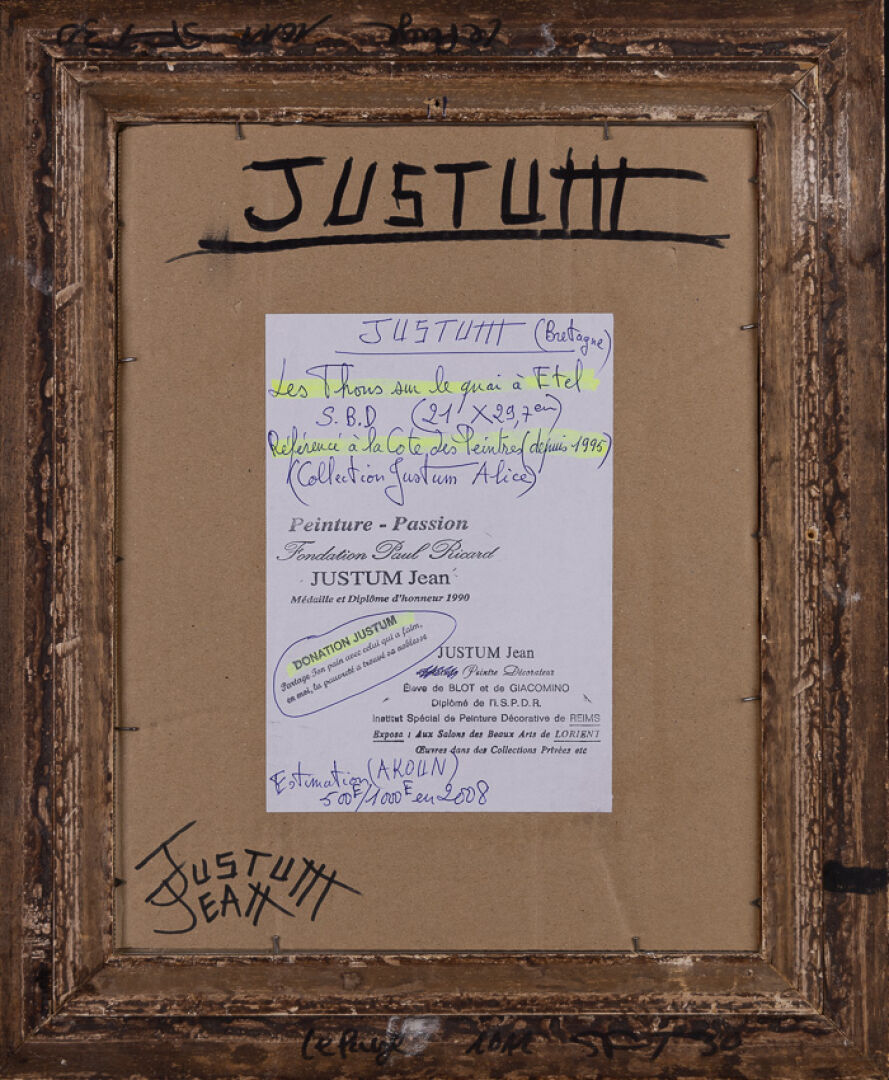 JUSTUM
JUSTUM (Bretagne)
Les Thons sur le quai à Etel
S.B.D (21 X 29,7 cm)
Référencé à la Cote des Peintres (depuis 1995)
(Collection Justum Alice)
Peinture - Passion
Fondation Paul Ricard
JUSTUM Jean
Médaille et Diplôme d'honneur 1990
DONATION JUSTUM
Partage Ton pain avec celui qui a faim,
en moi, la pauvreté a trouvé sa noblesse
JUSTUM Jean
Peintre Décorateur
Élève de BLOT et de GIACOMINO
Diplômé de l'I.S.P.D.R.
Institut Spécial de Peinture Décorative de REIMS
Expose : Aux Salons des Beaux Arts de LORIENT
Œuvres dans des Collections Privées etc
Estimation (AKOUN)
500E/1000E en 2008
JUSTUM
JEAN